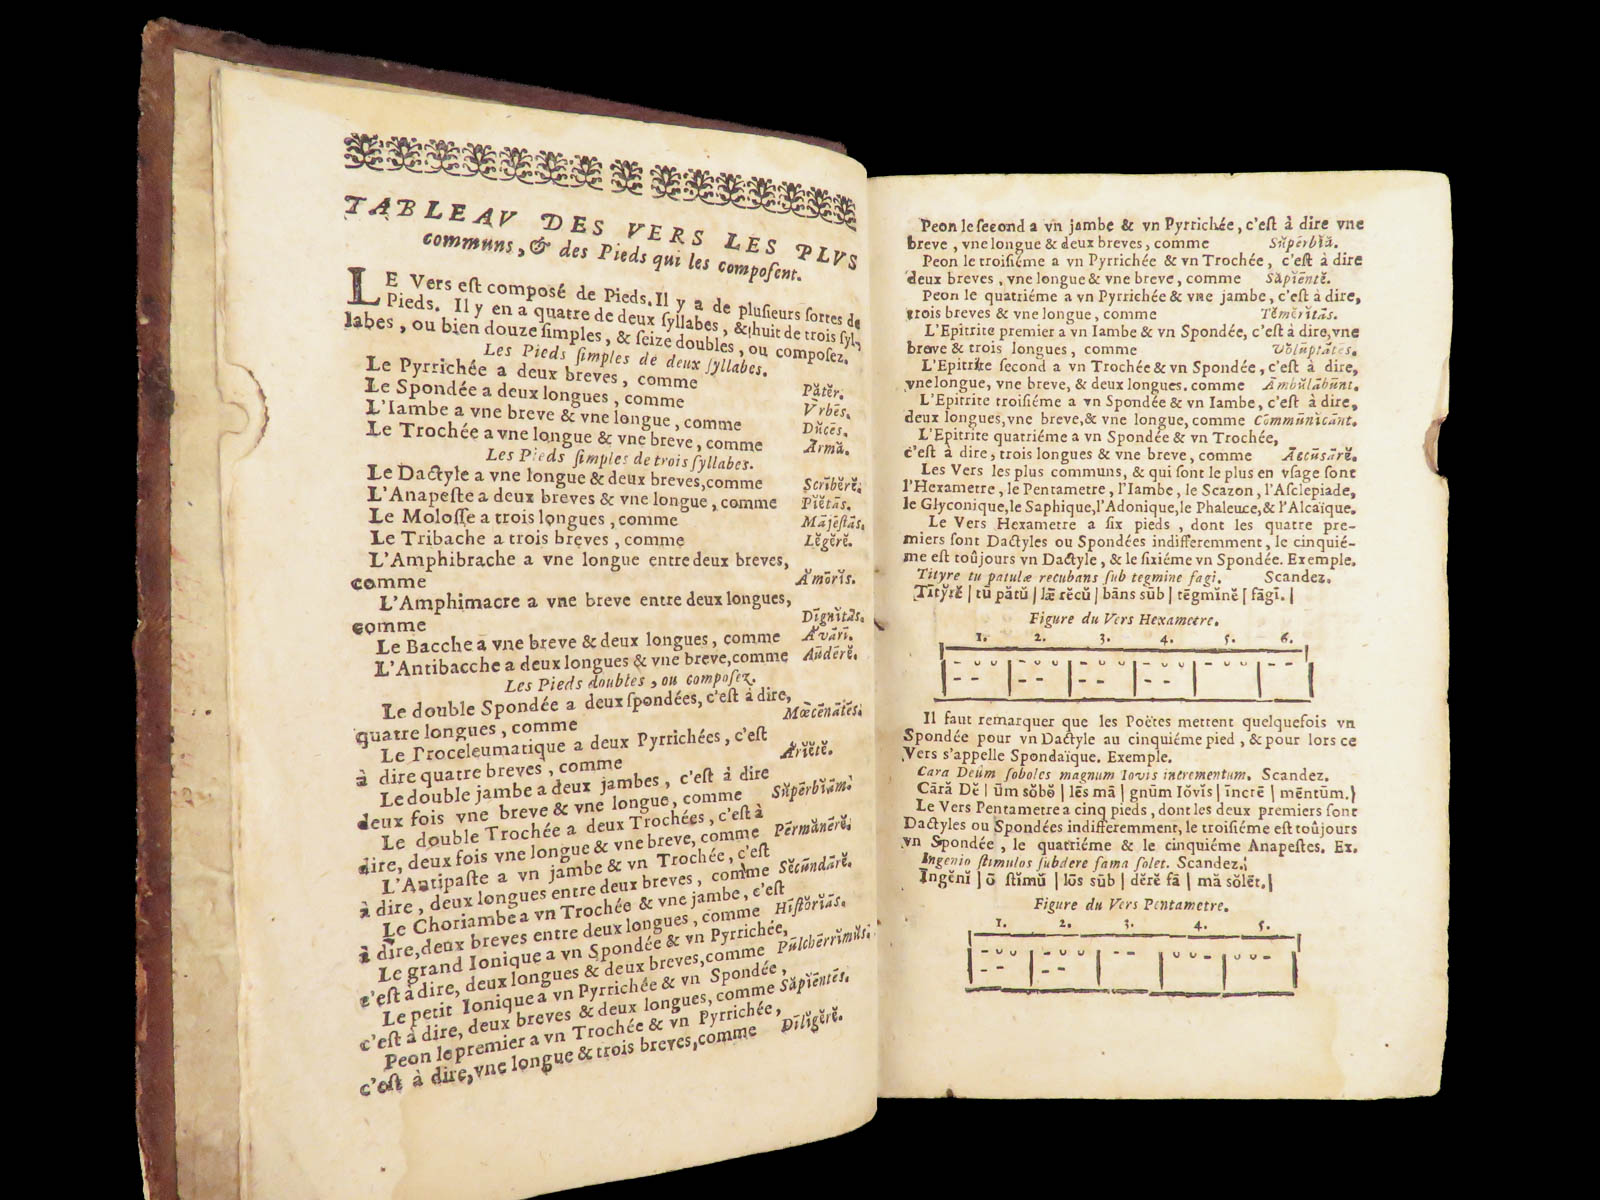 TABLEAV DES VERS LES PLVS
communs, & des Pieds qui les composent.
LE Vers est composé de Pieds. Il y a de plusieurs sortes de
Pieds. Il y en a quatre de deux syllabes, & huit de trois syl-
labes, ou bien douze simples, & seize doubles, ou composez.
Les Pieds simples de deux syllabes.
Le Pyrrichée a deux breves, comme Pătĕr.
Le Spondée a deux longues, comme V̄rbēs.
L'Iambe a vne breve & vne longue, comme Dŭcēs.
Le Trochée a vne longue & vne breve, comme Ārmă.
Les Pieds simples de trois syllabes.
Le Dactyle a vne longue & deux breves, comme Scrībĕrĕ.
L'Anapeste a deux breves & vne longue, comme Pĭĕtās.
Le Molosse a trois longues, comme Mājēstās.
Le Tribache a trois breves, comme Lĕgĕrĕ.
L'Amphibrache a vne longue entre deux breves,
comme Ămōrĭs.
L'Amphimacre a vne breve entre deux longues,
comme Dīgnĭtās.
Le Bacche a vne breve & deux longues, comme Ăvārī.
L'Antibacche a deux longues & vne breve, comme Āūdērĕ.
Les Pieds doubles, ou composez.
Le double Spondée a deux spondées, c'est à dire,
quatre longues, comme Mœcēnātēs.
Le Proceleumatique a deux Pyrrichées, c'est
à dire quatre breves, comme Ărĭĕtĕ.
Le double jambe a deux jambes, c'est à dire
deux fois vne breve & vne longue, comme Sŭpērbĭām.
Le double Trochée a deux Trochées, c'est à
dire, deux fois vne longue & vne breve, comme Pērmănērĕ.
L'Antipaste a vn jambe & vn Trochée, c'est
à dire, deux longues entre deux breves, comme Sĕcūndārĕ.
Le Choriambe a vn Trochée & vne jambe, c'est
à dire, deux breves entre deux longues, comme Hīstŏrĭās.
Le grand Ionique a vn Spondée & vn Pyrrichée,
c'est à dire, deux longues & deux breves, comme Pūlchērrĭmŭs.
Le petit Ionique a vn Pyrrichée & vn Spondée,
c'est à dire, deux breves & deux longues, comme Săpĭēntēs.
Peon le premier a vn Trochée & vn Pyrrichée,
c'est à dire, vne longue & trois breves, comme Dīlĭgĕrĕ.
Peon le second a vn jambe & vn Pyrrichée, c'est à dire vne
breve, vne longue & deux breves, comme Sŭpērbĭă.
Peon le troisiéme a vn Pyrrichée & vn Trochée, c'est à dire
deux breves, vne longue & vne breve, comme Săpĭēntĕ.
Peon le quatriéme a vn Pyrrichée & vne jambe, c'est à dire,
trois breves & vne longue, comme Tĕmĕrĭtās.
L'Epitrite premier a vn Iambe & vn Spondée, c'est à dire, vne
breve & trois longues, comme Vŏlūptātēs.
L'Epitrite second a vn Trochée & vn Spondée, c'est à dire,
vne longue, vne breve, & deux longues. comme Āmbŭlābūnt.
L'Epitrite troisiéme a vn Spondée & vn Iambe, c'est à dire,
deux longues, vne breve, & vne longue, comme Cōmmūnĭcānt.
L'Epitrite quatriéme a vn Spondée & vn Trochée,
c'est à dire, trois longues & vne breve, comme Āccūsārĕ.
Les Vers les plus communs, & qui sont le plus en vsage sont
l'Hexametre, le Pentametre, l'Iambe, le Scazon, l'Asclepiade,
le Glyconique, le Saphique, l'Adonique, le Phaleuce, & l'Alcaïque.
Le Vers Hexametre a six pieds, dont les quatre pre-
miers sont Dactyles ou Spondées indifferemment, le cinquié-
me est toûjours vn Dactyle, & le sixiéme vn Spondée. Exemple.
Tityre tu patulæ recubans sub tegmine fagi. Scandez.
Tītўrĕ | tū pătŭ | læ̅ rĕcŭ | bāns sūb | tēgmĭnĕ | fāgī. |
Figure du Vers Hexametre.
1. 2. 3. 4. 5. 6.
Il faut remarquer que les Poëtes mettent quelquefois vn
Spondée pour vn Dactyle au cinquiéme pied, & pour lors ce
Vers s'appelle Spondaïque. Exemple.
Cara Deûm soboles magnum Iovis incrementum. Scandez.
Cāră Dĕ | ūm sŏbŏ | lēs mā | gnūm Iŏvĭs | īncrē | mēntūm. |
Le Vers Pentametre a cinq pieds, dont les deux premiers sont
Dactyles ou Spondées indifferemment, le troisiéme est toûjours
vn Spondée, le quatriéme & le cinquiéme Anapestes. Ex.
Ingenio stimulos subdere fama solet. Scandez.
Īngĕnĭ | ō stĭmŭ | lōs sūb | dĕrĕ fā | mă sŏlēt. |
Figure du Vers Pentametre.
1. 2. 3. 4. 5.